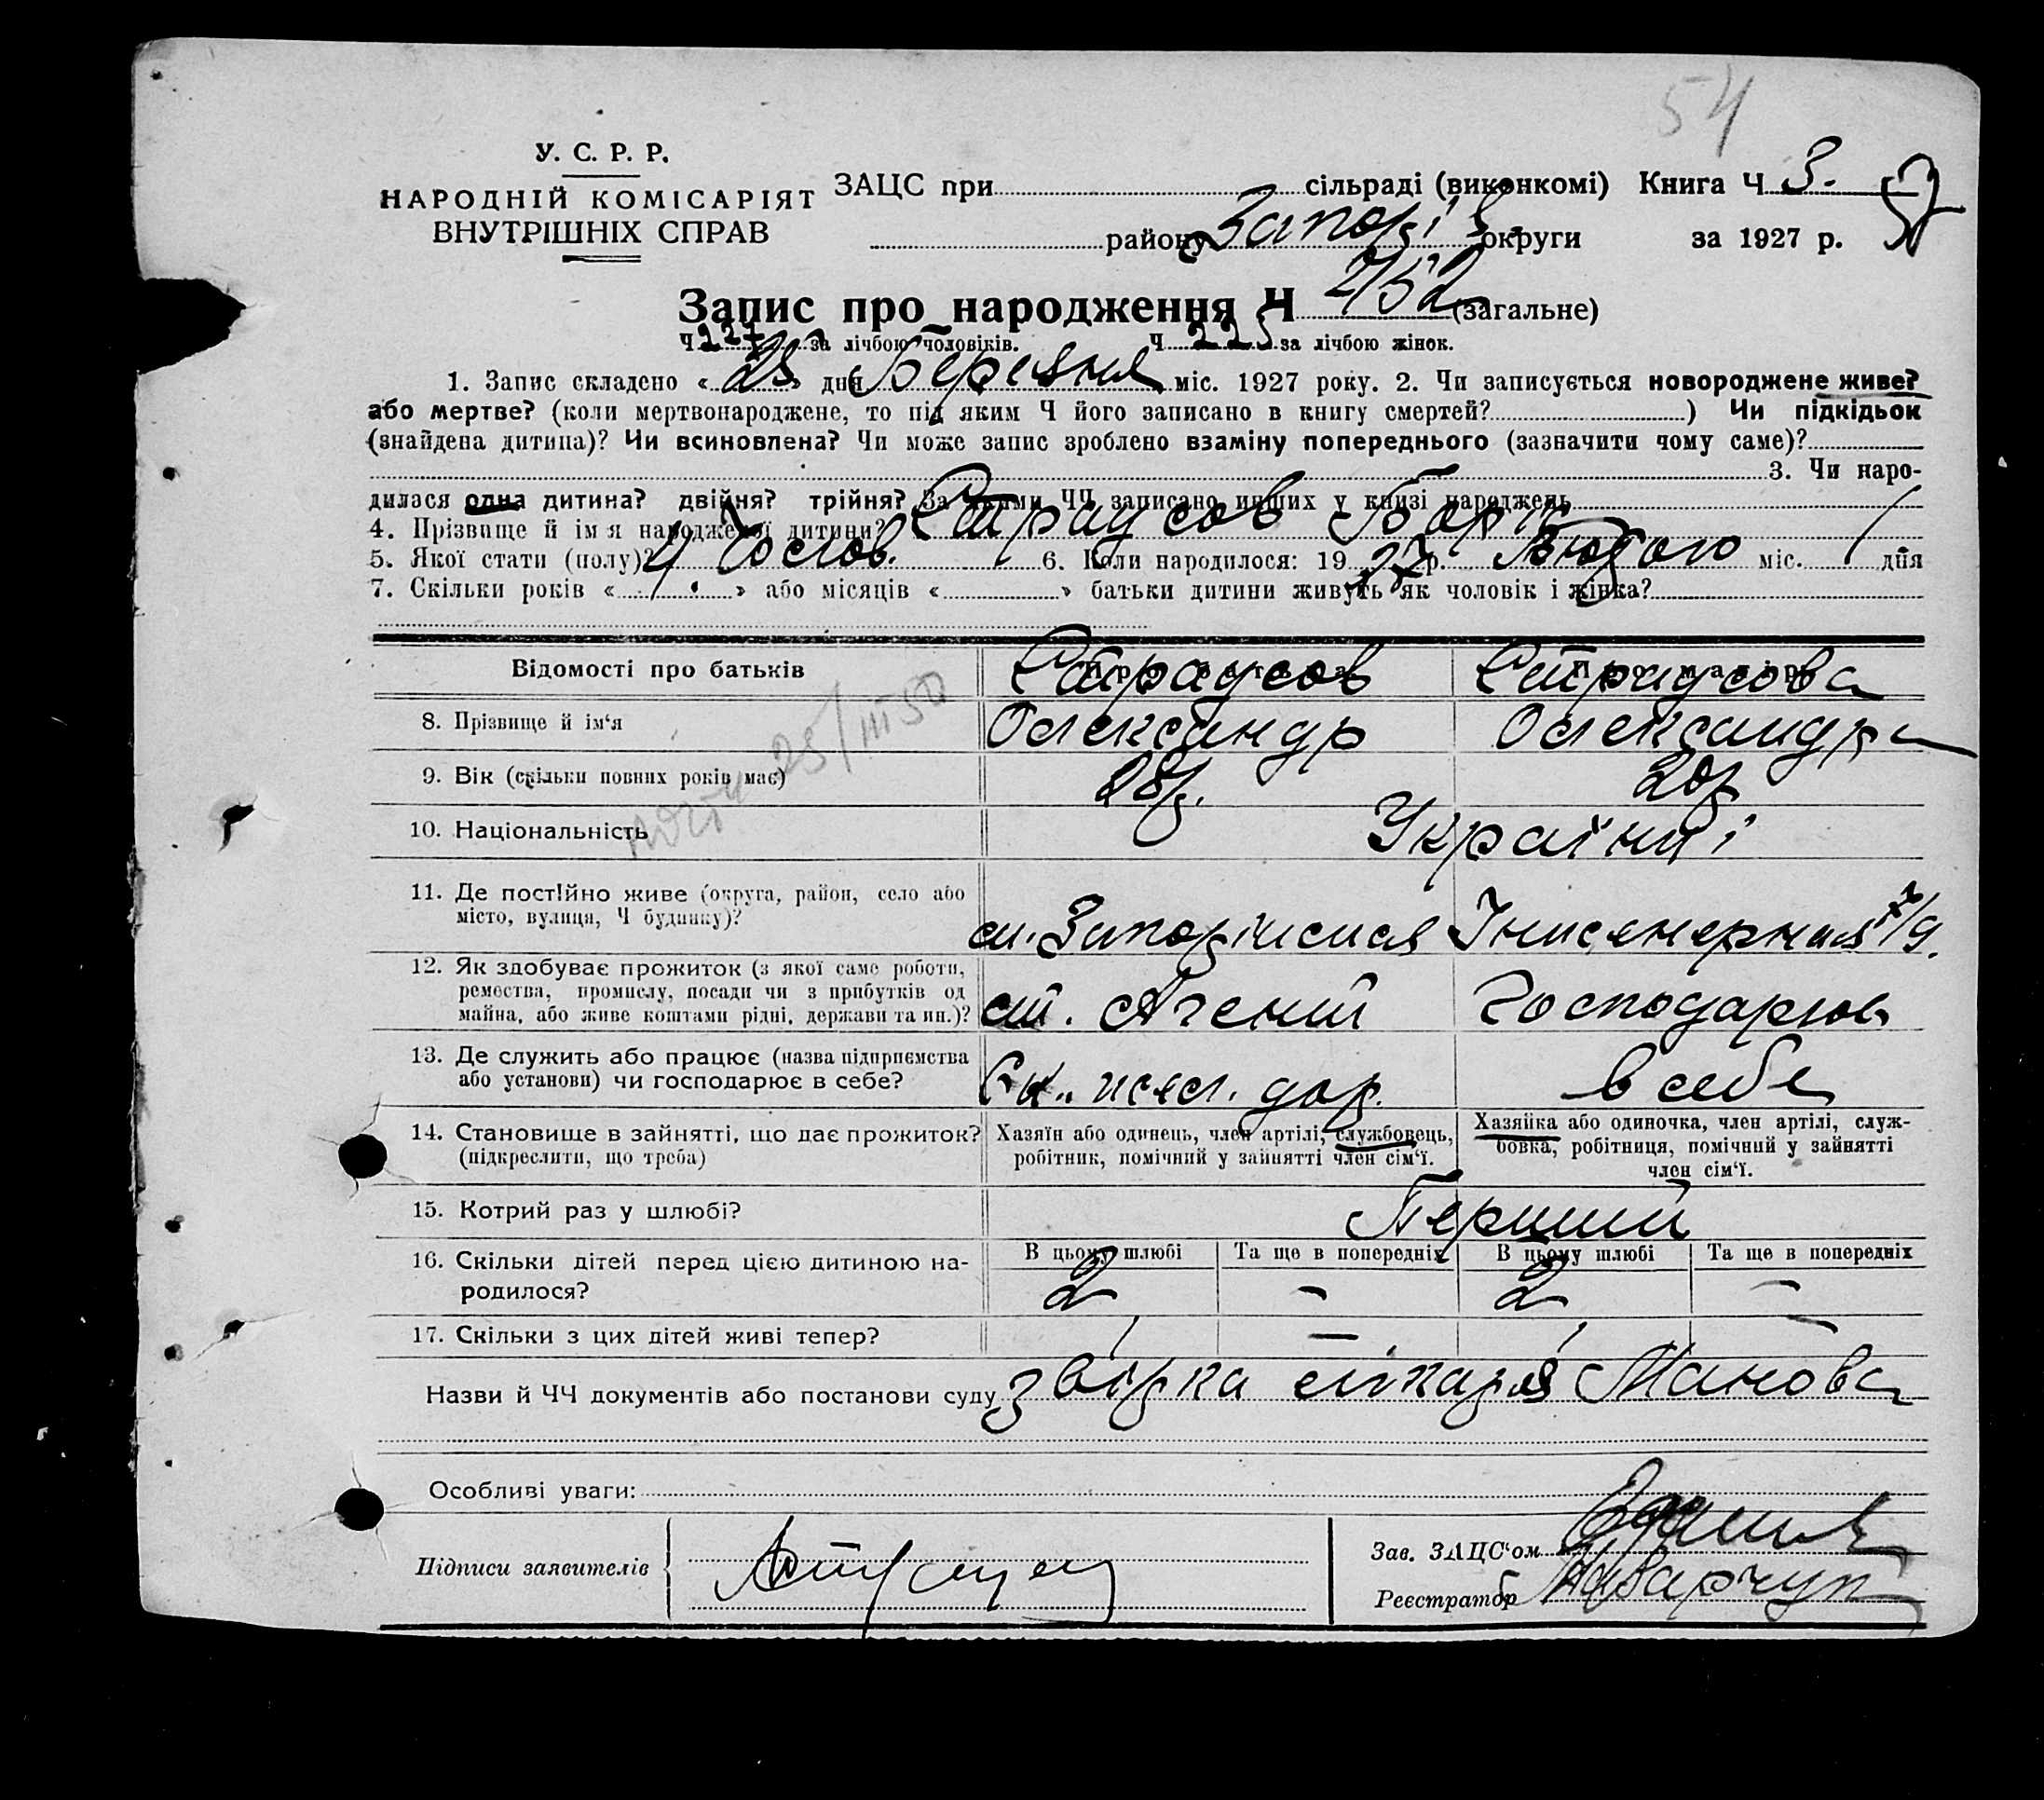 54
У. С. Р. Р.
НАРОДНІЙ КОМІСАРІЯТ
ВНУТРІШНІХ СПРАВ
ЗАЦС при сільраді (виконкомі) Книга Ч 3.
району Запоріз. округи за 1927 р.
Запис про народження Ч 452 (загальне)
Ч 227 за лічбою чоловіків. Ч 225 за лічбою жінок.
1. Запис складено « 25 » дня Березня міс. 1927 року. 2. Чи записується новороджене живе?
або мертве? (коли мертвонароджене, то під яким Ч його записано в книгу смертей? ) Чи підкідьок
(знайдена дитина)? Чи всиновлена? Чи може запис зроблено взаміну попереднього (зазначити чому саме)?
3. Чи наро-
дилася одна дитина? двійня? трійня? За якими ЧЧ записано инших у книзі народжень
4. Прізвище й ім'я народженої дитини? Страусов Борис
5. Якої стати (полу)? Чолов. 6. Коли народилося: 1927 р. Лютого міс. 1 дня
7. Скільки років « » або місяців « » батьки дитини живуть як чоловік і жінка?
Відомості про батьків
Страусов Страусова
8. Прізвище й ім‘я Олександр Олександра
9. Вік (скільки повних років має) 28р. 20р
10. Національність Українці
11. Де постійно живе (округа, район, село або
місто, вулиця, Ч будинку)? Інженерная
12. Як здобуває прожиток (з якої саме роботи,
ремества, промислу, посади чи з прибутків од
майна, або живе коштами рідні, держави та ин.)? Господарює
13. Де служить або працює (назва підприємства
або установи) чи господарює в себе? дор. в себе
14. Становище в зайнятті, що дає прожиток?
(підкреслити, що треба)
Хазяїн або одинець, член артілі, службовець,
робітник, помічний у зайнятті член сім‘ї.
Хазяйка або одиночка, член артілі, служ-
бовка, робітниця, помічний у зайнятті
член сім‘ї.
15. Котрий раз у шлюбі? Перший
В цьому шлюбі Та ще в попередніх В цьому шлюбі Та ще в попередніх
16. Скільки дітей перед цією дитиною на-
родилося? 2 – 2 –
17. Скільки з цих дітей живі тепер? 1 – 1 –
Назви й ЧЧ документів або постанови суду
Особливі уваги:
Підписи заявителів
Зав. ЗАЦС‘ом
Реєстратор